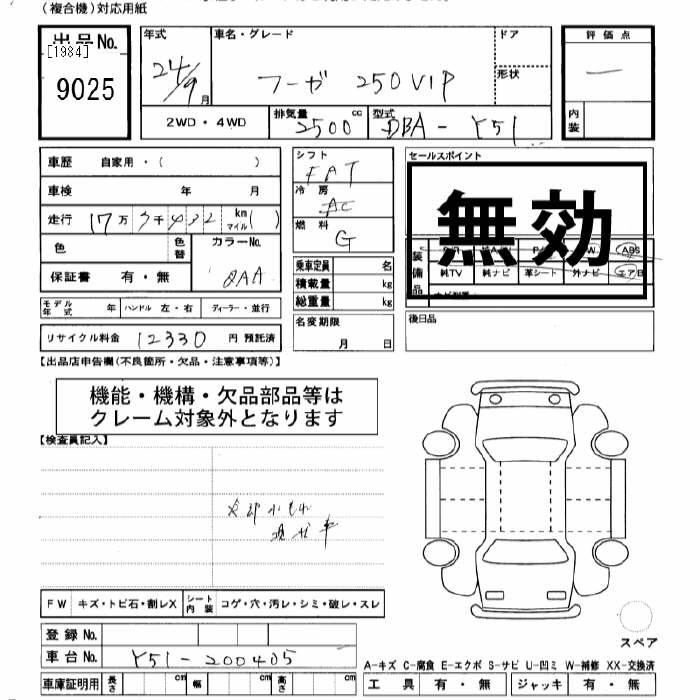 (複合機)対応用紙
出品No.
[1984]
9025
年式 24/9 月
車名・グレード フーガ 250VIP
ドア
形状
評価点
一
内装
2WD・4WD
排気量 2500 cc
型式 DBA-Y51
車歴 自家用・( )
車検 年 月
走行 17万3千432 km マイル( )
色
色替
カラーNo. QAA
保証書 有・無
シフト FAT
冷房 AC
燃料 G
乗車定員 名
積載量 kg
総重量 kg
名変期限 月 日
セールスポイント
無効
装備品
ABS
純TV 純ナビ 革シート 外ナビ エアB
後日品
モデル年式 年 ハンドル 左・右 ディーラー・並行
リサイクル料金 12330 円 預託済
【出品店申告欄(不良箇所・欠品・注意事項等)】
機能・機構・欠品部品等は
クレーム対象外となります
【検査員記入】
FW キズ・トビ石・割レX シート内装 コゲ・穴・汚レ・シミ・破レ・スレ
登録No.
車台No. Y51-200405
車庫証明用 長さ cm 幅 cm 高さ cm
スペア
A-キズ C-腐食 E-エクボ S-サビ U-凹ミ W-補修 XX-交換済
工具 有・無 ジャッキ 有・無